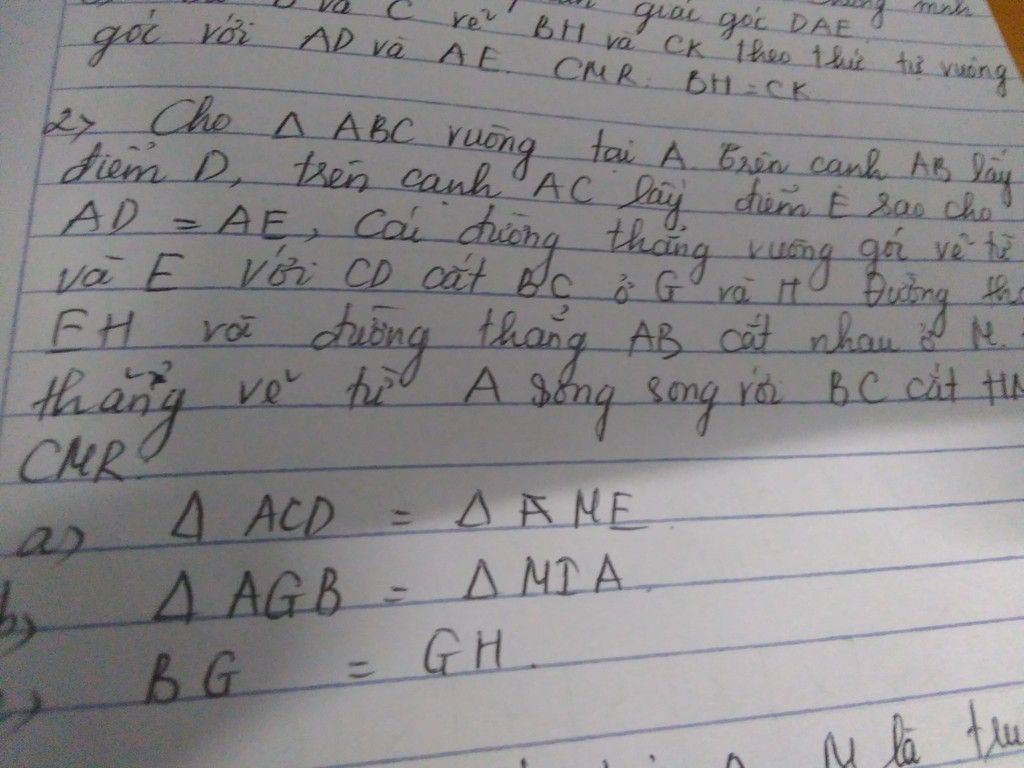 và C vẽ BH và CK theo thứ tự vuông
giác góc DAE
góc với AD và AE. CMR: BH = CK
2) Cho Δ ABC vuông tại A trên cạnh AB lấy
điểm D, trên cạnh AC lấy điểm E sao cho
AD = AE, Các đường thẳng vuông góc vẽ từ
và E với CD cắt BC ở G và H Đường
EH và đường thẳng AB cắt nhau ở M.
thẳng vẽ từ A song song với BC cắt
CMR
a) Δ ACD = Δ AME
b) Δ AGB = Δ MIA.
BG = GH.
M là